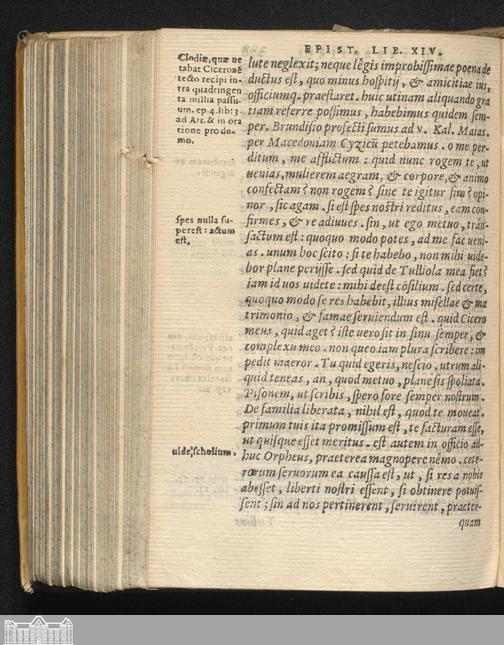 EPIST. LIB. XIV.
Clodiæ, quæ ue
tabat Ciceronē
tecto recipi in-
tra quadringen
ta millia passu-
um. ep. 4. lib. 3.
ad Att. & in ora
tione pro do-
mo.
spes nulla su-
perest: actum
est.
uide, scholium.
lute neglexit; neque lêgis improbissimae poena de
ductus est, quo minus hospitij, & amicitiae ius,
officiumq. praestaret. huic utinam aliquando gra
tiam referre possimus, habebimus quidem sem-
per. Brundisio profecti sumus ad v. Kal. Maias.
per Macedoniam Cyzicū petebamus. o me per-
ditum, me afflictum: quid nunc rogem te, ut
uenias, mulierem aegram, & corpore, & animo
confectam? non rogem? sine te igitur sim? opi-
nor, sic agam. si est spes nostri reditus, eam con-
firmes, & re adiuues. sin, ut ego metuo, trān-
sactum est: quoquo modo potes, ad me fac ueni-
as. unum hoc scito: si te habebo, non mihi uide-
bor plane perijsse. sed quid de Tulliola mea fiet?
iam id uos uidete: mihi deest cōsilium. sed certe,
quoquo modo se res habebit, illius misellae & ma
trimonio, & famae seruiendum est. quid Cicero
meus, quid aget? iste uero sit in sinu semper, &
complexu meo. non queo iam plura scribere: im
pedit maeror. Tu quid egeris, nescio, utrum ali-
quid teneas, an, quod metuo, plane sis spoliata.
Pisonem, ut scribis, spero fore semper nostrum.
De familia liberata, nihil est, quod te moueat.
primum tuis ita promissum est, te facturam esse,
ut quisque esset meritus. est autem in officio ad-
huc Orpheus, praeterea magnopere nēmo. cete-
rorum seruorum ea caussa est, ut, si res a nobis
abesset, liberti nostri essent, si obtinere potuis-
sent; sin ad nos pertinerent, seruirent, praeter-
quam